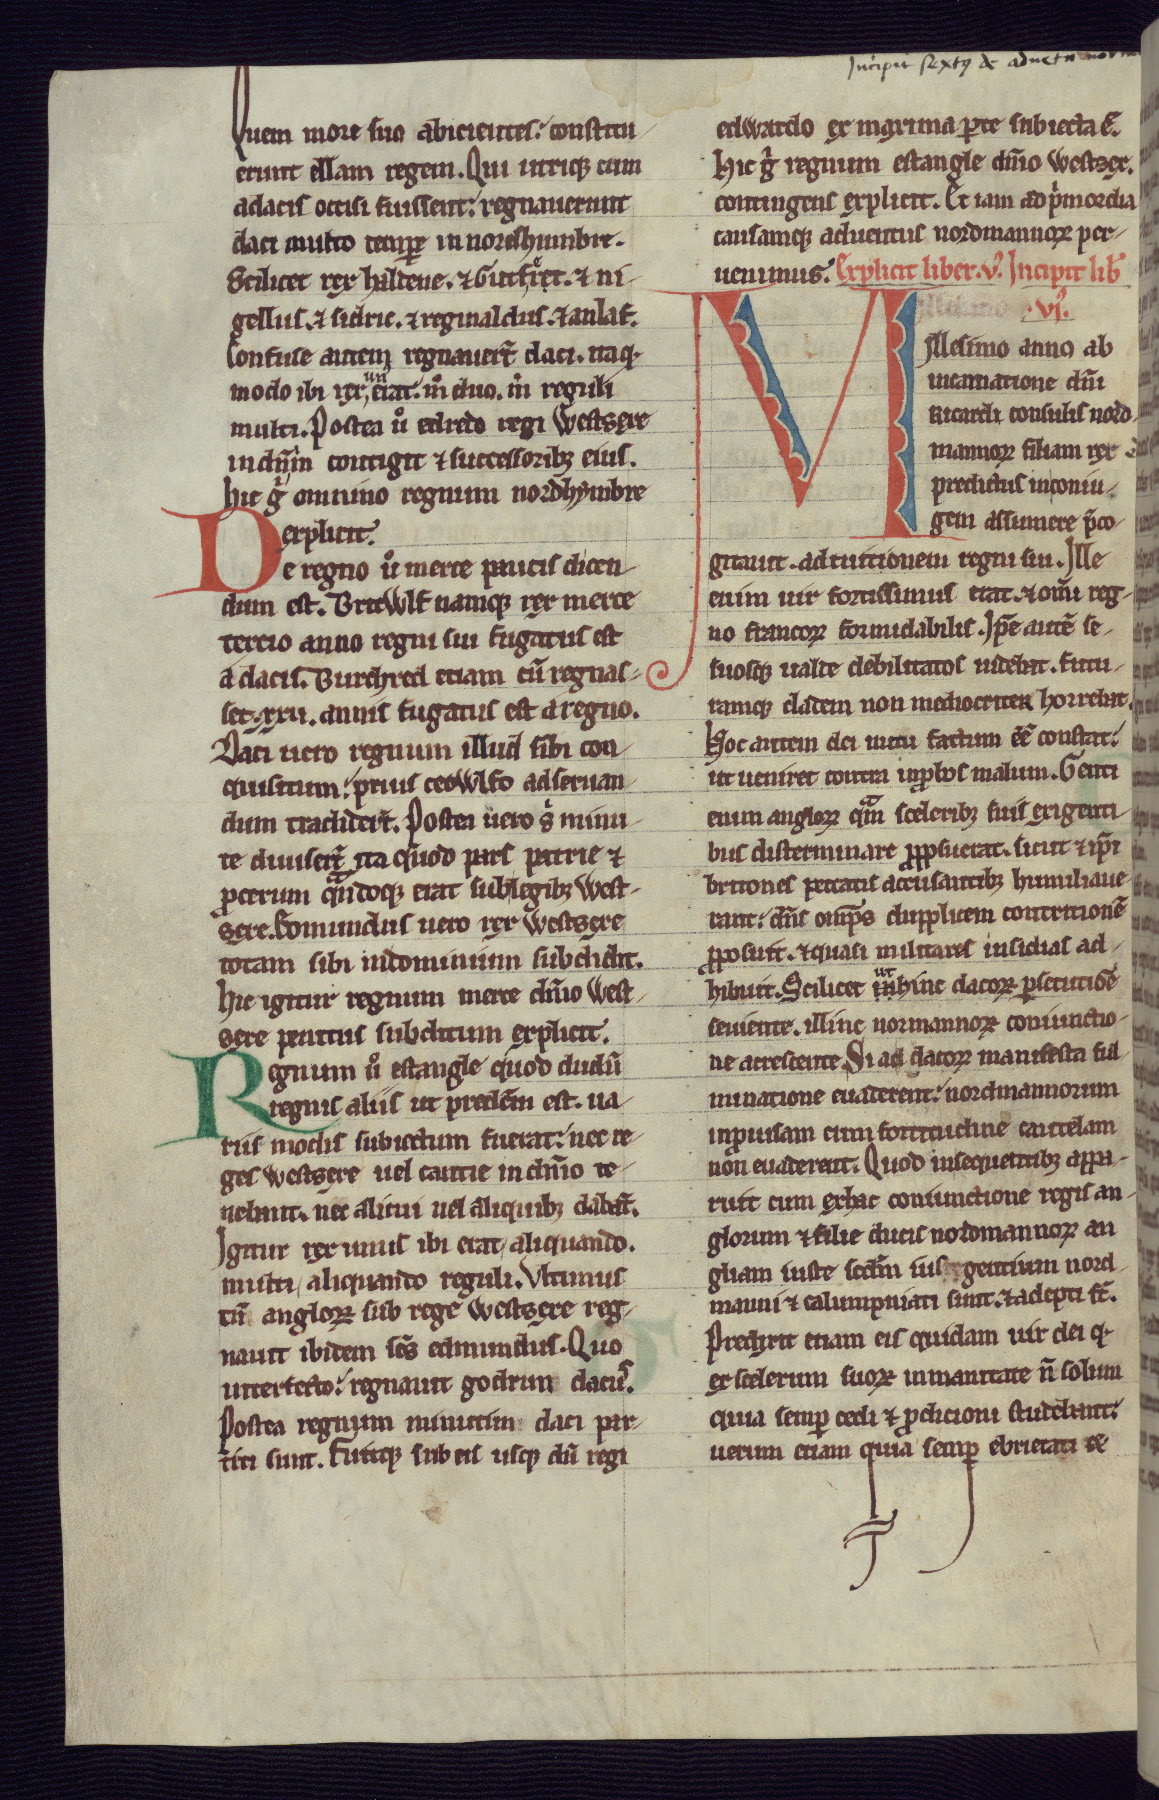 Incipit sextus de adventu
Quem more suo abicientes: constitu-
erunt ellam regem. Qui utriq; cum
a dacis occisi fuissent: regnauerunt
daci multo tempe in northumbre.
Scilicet rex haldene. & Gutfret. & ni-
gellus. & sidric. & reginaldus. & anlaf.
Confuse autem regnauert daci. itaq;
modo ibi rex un erat. mo duo. mo reguli
multi. Postea uo edredo regi Westsexe
in dnium contigit & successorib; eius.
hic gi omnino regnum nordhymbre
explicit.
De regno uo merce paucis dicen-
dum est. BritWlf namq; rex merce
tercio anno regni sui fugatus est
a dacis. Burchred etiam cu regnas-
set .xxii. annis fugatus est a regno.
Daci uero regnum illud sibi con-
quisitum: prius ceoWlfo ad seruan-
dum tradidert. Postea uero s minu-
te diuisert ita quod pars patrie &
pcerum qndoq; erat sub legib; West-
sexe. Edmundus uero rex Westsexe
totam sibi in dominium subdidit.
hic igitur regnum merce dmio West-
sexe penitus subditum explicit.
Regnum uo estangle quod dudu
regnis aliis ut predcm est. ua-
riis modis subiectum fuerat: nec re-
ges westsexe uel cantie in dmio te-
nebant. nec alicui uel aliquib; dabat.
Igitur rex unus ibi erat, aliquando.
multi, aliquando reguli. Vltimus
tn anglor sub rege Westsexe reg-
nauit ibidem scs edmundus. Quo
interfecto: regnauit godrun dacus.
Postea regnum minutim daci par-
titi sunt. Fuitq; sub eis usq; du regi
edwardo ex maxima pte subiecta e.
Hic gi regnum estangle dmio Westsex.
contingens explicit. Et iam ad pmordia
causamq; aduentus nordmannor per-
uenimus. Explicit liber .v. Incipit lib
.vi.
Millesimo anno ab
incarnatione dni
Ricardi consulis nord-
mannor filiam rex
predictus in coniu-
gem assumere pco-
gitauit. ad tuitionem regni sui. Ille
enim uir fortissimus erat. & omi reg-
no francor formidabilis. Ipse aute se-
suosq; ualde debilitatos uidebat. futu-
ramq; cladem non mediocriter horrebat.
Hoc autem dei nutu factum ee constat:
ut ueniret contra improbos malum. Genti
enim anglor qm sceleribz suis exigenti-
bus disterminare pposuerat. sicut & ipsi
britones peccatis accusantibz humiliaue-
rant: dns omps dupplicem contritione
pposuit. & quasi militares insidias ad-
hibuit. Scilicet ut hinc dacor psecutioe
seuiente. illinc normannor coniunctio-
ne accrescente Si ad dacor manifesta ful-
minatione euaderent: nordmannorum
inprouisam cum fortitudine cautelam
non euaderent. Quod in sequentibz appa-
ruit cum ex hac coniunctione regis an-
glorum & filie ducis nordmannor an
gliam iuste scdm ius gentium nord-
manni & calumpniati sunt. & adepti st.
Predixit etiam eis quidam uir dei q;
ex scelerum suor inmanitate n solum
quia semp cedi & pdicioni studebant:
uerum etiam quia semp ebrietati &